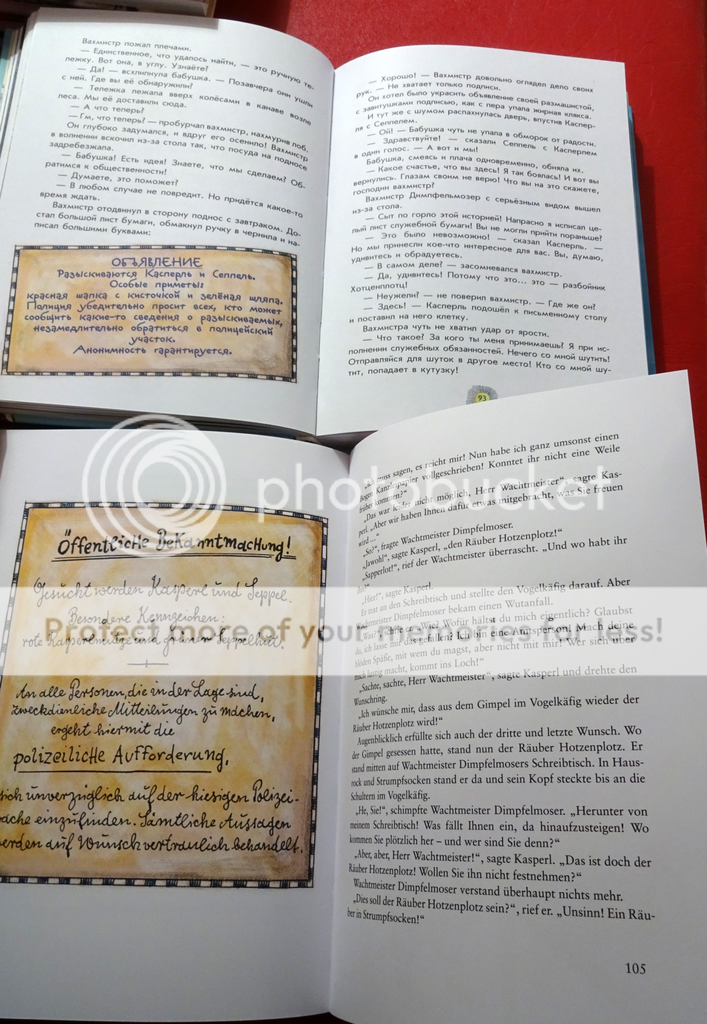 Вахмистр пожал плечами.
— Единственное, что удалось найти, — это ручную те-
лежку. Вот она, в углу. Узнаёте?
— Да! — всхлипнула бабушка. — Позавчера они ушли
с ней. Где вы её обнаружили?
— Тележка лежала вверх колёсами в канаве возле
леса. Мы её доставили сюда.
— А что теперь?
— Гм, что теперь? — пробурчал вахмистр, нахмурив лоб.
Он глубоко задумался, и вдруг его осенило! Вахмистр
в волнении вскочил из-за стола так, что посуда на подносе
задребезжала.
— Бабушка! Есть идея! Знаете, что мы сделаем? Об-
ратимся к общественности!
— Думаете, это поможет?
— В любом случае не повредит. Но придётся какое-то
время ждать.
Вахмистр отодвинул в сторону поднос с завтраком. До-
стал большой лист бумаги, обмакнул ручку в чернила и на-
писал большими буквами:
ОБЪЯВЛЕНИЕ
Разыскиваются Касперль и Сеппель.
Особые приметы:
красная шапка с кисточкой и зелёная шляпа.
Полиция убедительно просит всех, кто может
сообщить какие-то сведения о разыскиваемых,
незамедлительно обратиться в полицейский
участок.
Анонимность гарантируется.
— Хорошо! — Вахмистр довольно оглядел дело своих
рук. — Не хватает только подписи.
Он хотел было украсить объявление своей размашистой,
с завитушками подписью, как с пера упала жирная клякса.
И тут же с шумом распахнулась дверь, впустив Каспер-
ля с Сеппелем.
— Ой! — Бабушка чуть не упала в обморок от радости.
— Здравствуйте! — сказали Сеппель с Касперлем
в один голос. — А вот и мы!
Бабушка, смеясь и плача одновременно, обняла их.
— Какое счастье, что вы здесь! Я так боялась! И вот вы
вернулись. Глазам своим не верю! Что вы на это скажете,
господин вахмистр?
Вахмистр Димпфельмозер с серьёзным видом вышел
из-за стола.
— Сыт по горло этой историей! Напрасно я исписал це-
лый лист служебной бумаги! Вы не могли прийти пораньше!
— Это было невозможно! — сказал Касперль. —
Но мы принесли кое-что интересное для вас. Вы, думаю,
удивитесь и обрадуетесь.
— В самом деле? — засомневался вахмистр.
— Да, удивитесь! Потому что это... это — разбойник
Хотценплотц!
— Неужели? — не поверил вахмистр. — Где же он?
— Здесь! — Касперль подошёл к письменному столу
и поставил на него клетку.
Вахмистра чуть не хватил удар от ярости.
— Что такое? За кого ты меня принимаешь! Я при ис-
полнении служебных обязанностей. Нечего со мной шутить!
Отправляйся для шуток в другое место! Кто со мной шу-
тит, попадает в кутузку!
93
Öffentliche Bekanntmachung!
Gesucht werden Kasperl und Seppel.
Besondere Kennzeichen:
rote Kasperlmütze und grüner Seppelhut.
An alle Personen, die in der Lage sind,
zweckdienliche Mitteilungen zu machen,
ergeht hiermit die
polizeiliche Aufforderung,
sich unverzüglich auf der hiesigen Polizei-
ache einzufinden. Sämtliche Aussagen
erden auf Wunsch vertraulich behandelt.
muss sagen, es reicht mir! Nun habe ich ganz umsonst einen
Bogen Kanzleipapier vollgeschrieben! Konntet ihr nicht eine Weile
früher kommen?"
„Das war leider nicht möglich, Herr Wachtmeister", sagte Kas-
perl. „Aber wir haben Ihnen dafür etwas mitgebracht, was Sie freuen
wird ..."
„So?", fragte Wachtmeister Dimpfelmoser.
„Jawohl", sagte Kasperl, „den Räuber Hotzenplotz!"
„Sapperlot!", rief der Wachtmeister überrascht. „Und wo habt ihr
ihn?"
„Hier!", sagte Kasperl.
Er trat an den Schreibtisch und stellte den Vogelkäfig darauf. Aber
Wachtmeister Dimpfelmoser bekam einen Wutanfall.
„Was? Wofür hältst du mich eigentlich? Glaubst
du, ich lasse mich veräppeln? Ich bin eine Amtsperson! Mach deine
blöden Späße, mit wem du magst, aber nicht mit mir! Wer sich über
mich lustig macht, kommt ins Loch!"
„Sachte, sachte, Herr Wachtmeister", sagte Kasperl und drehte den
Wunschring.
„Ich wünsche mir, dass aus dem Gimpel im Vogelkäfig wieder der
Räuber Hotzenplotz wird!"
Augenblicklich erfüllte sich auch der dritte und letzte Wunsch. Wo
der Gimpel gesessen hatte, stand nun der Räuber Hotzenplotz. Er
stand mitten auf Wachtmeister Dimpfelmosers Schreibtisch. In Haus-
rock und Strumpfsocken stand er da und sein Kopf steckte bis an die
Schultern im Vogelkäfig.
„He, Sie!", schimpfte Wachtmeister Dimpfelmoser. „Herunter von
meinem Schreibtisch! Was fällt Ihnen ein, da hinaufzusteigen! Wo
kommen Sie plötzlich her – und wer sind Sie denn?"
„Aber, aber, Herr Wachtmeister!", sagte Kasperl. „Das ist doch der
Räuber Hotzenplotz! Wollen Sie ihn nicht festnehmen?"
Wachtmeister Dimpfelmoser verstand überhaupt nichts mehr.
„Dies soll der Räuber Hotzenplotz sein?", rief er. „Unsinn! Ein Räu-
ber in Strumpfsocken!"
105
photobucket
Protect more of your memories for less!